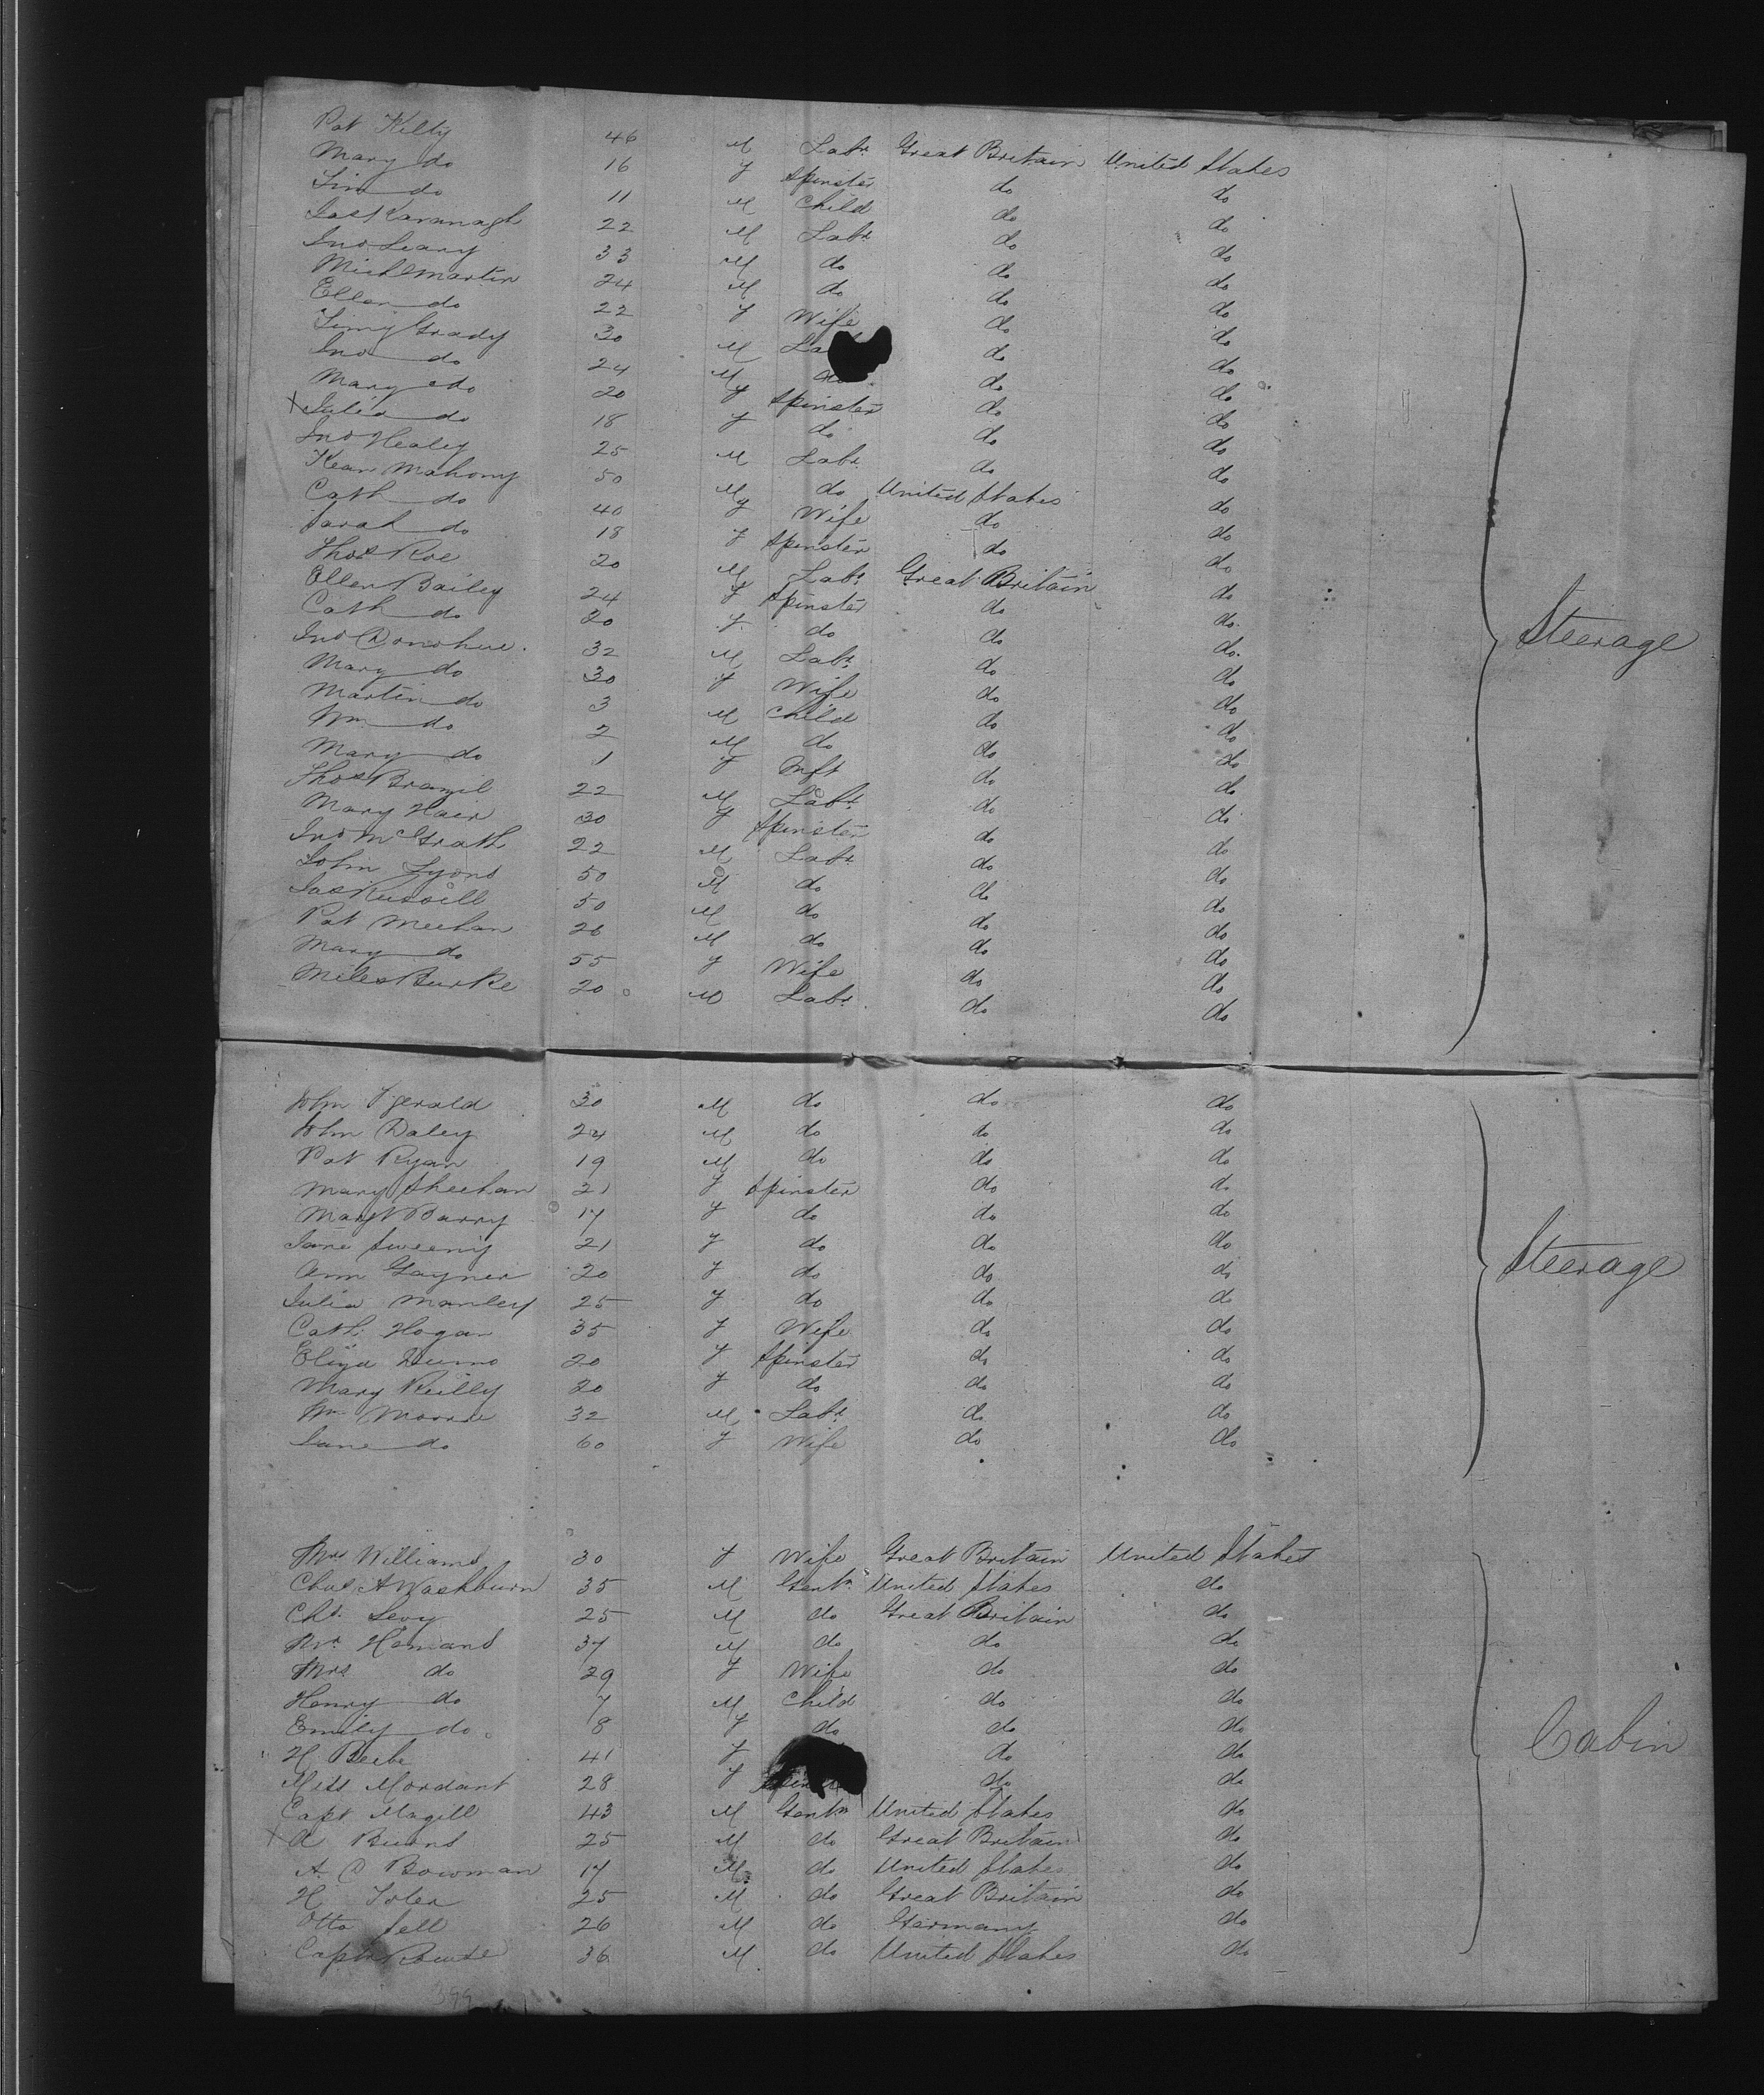 Pat Kilty 46 M Labr Great Britain United States
Mary do 16 F Spinster do do
Jim do 11 M Child do do
Jas Kavanagh 22 M Labr do do
Jno Leary 33 M do do do
Michl Martin 24 M do do do
Ellen do 22 F Wife do do
Timy Grady 30 M La do do
Jno do 24 M do do do
Mary do 20 F Spinster do do
x Julia do 18 F do do do
Jno Healey 25 M Labr do do
Kean Mahony 50 M do United States do
Cath do 40 F Wife do do
Sarah do 18 F Spinster do do
Thos Roe 20 M Labr Great Britain do
Ellen Bailey 24 F Spinster do do.
Cath do 20 F do do do.
Jno Donohue. 32 M Labr do do
Mary do 30 F Wife do do
Martin do 3 M Child do do
Wm do 2 M do do do
Mary do 1 F Inft do do
Thos Brazil 22 M Labr do do
Mary Hair 30 F Spinster do do
Jno McGrath 22 M Labr do do
John Lyons 50 M do do do
Jas Russell 50 M do do do
Pat Meehan 26 M do do do
Mary do 55 F Wife do do
Miles Burke 20 M Labr do do
Steerage
John Fgerald 30 M do do do
John Daley 24 M do do do
Pat Ryan 19 M do do do
Mary Sheehan 21 F Spinster do do
Margt Barry 17 F do do do
Jane Sweeny 21 F do do do
Ann Gayner 20 F do do do
Julia Manley 25 F do do do
Cath Hogan 35 F Wife do do
Eliza Dunno 20 F Spinster do do
Mary Reilly 20 F do do do
Wm Moore 32 M Labr do do
Jane do 60 F Wife do do
Steerage
Mrs Williams 30 F Wife Great Britain United States
Chas A Washburn 35 M Gentn United States do
Chs. Levy 25 M do Great Britain do
Mr. Hemans 37 M do do do
Mrs do 29 F Wife do do
Henry do 7 M Child do do
Emily do 8 F do do do
H Beebe 41 F do do
Miss Mordant 28 F do do
Capt Magill 43 M Gentn United States do
x A Burns 25 M do Great Britain do
A D Bowman 17 M do United States do
H Toler 25 M do Great Britain do
Otto Sell 26 M do Germany do
Captn 36 M do United States do
Cabin
399